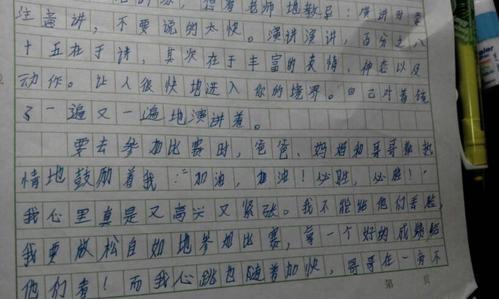 想着老师地教导:演讲时要
注意讲,不要说的太快。演讲演讲,百分之八
十五在于讲,其次在于丰富的表情,神态以及
动作。让人很快地进入你的境界。自己对着镜
子一遍又一遍地演讲着。
要去参加比赛时,爸爸、妈妈和哥哥都热
情地鼓励着我:“加油,加油!必胜,必胜!”
我心里真是又高兴又紧张。我不能给他们丢脸,
我要放松自如地参加比赛,拿一个好的成绩给
他们看!而我心跳也随着加快,哥哥在一旁不
第 页